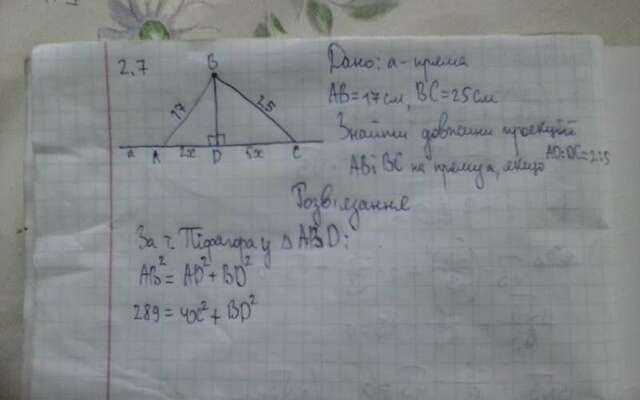 2.7
B
17
25
a A 2x D 5x C
Дано: a - пряма
AB = 17 см, BC = 25 см
Знайти довжини проекцій
AB і BC на пряму a, якщо AD:DC=2:5
Розв'язання
За т. Піфагора у △ABD:
AB² = AD² + BD²
289 = 4x² + BD²